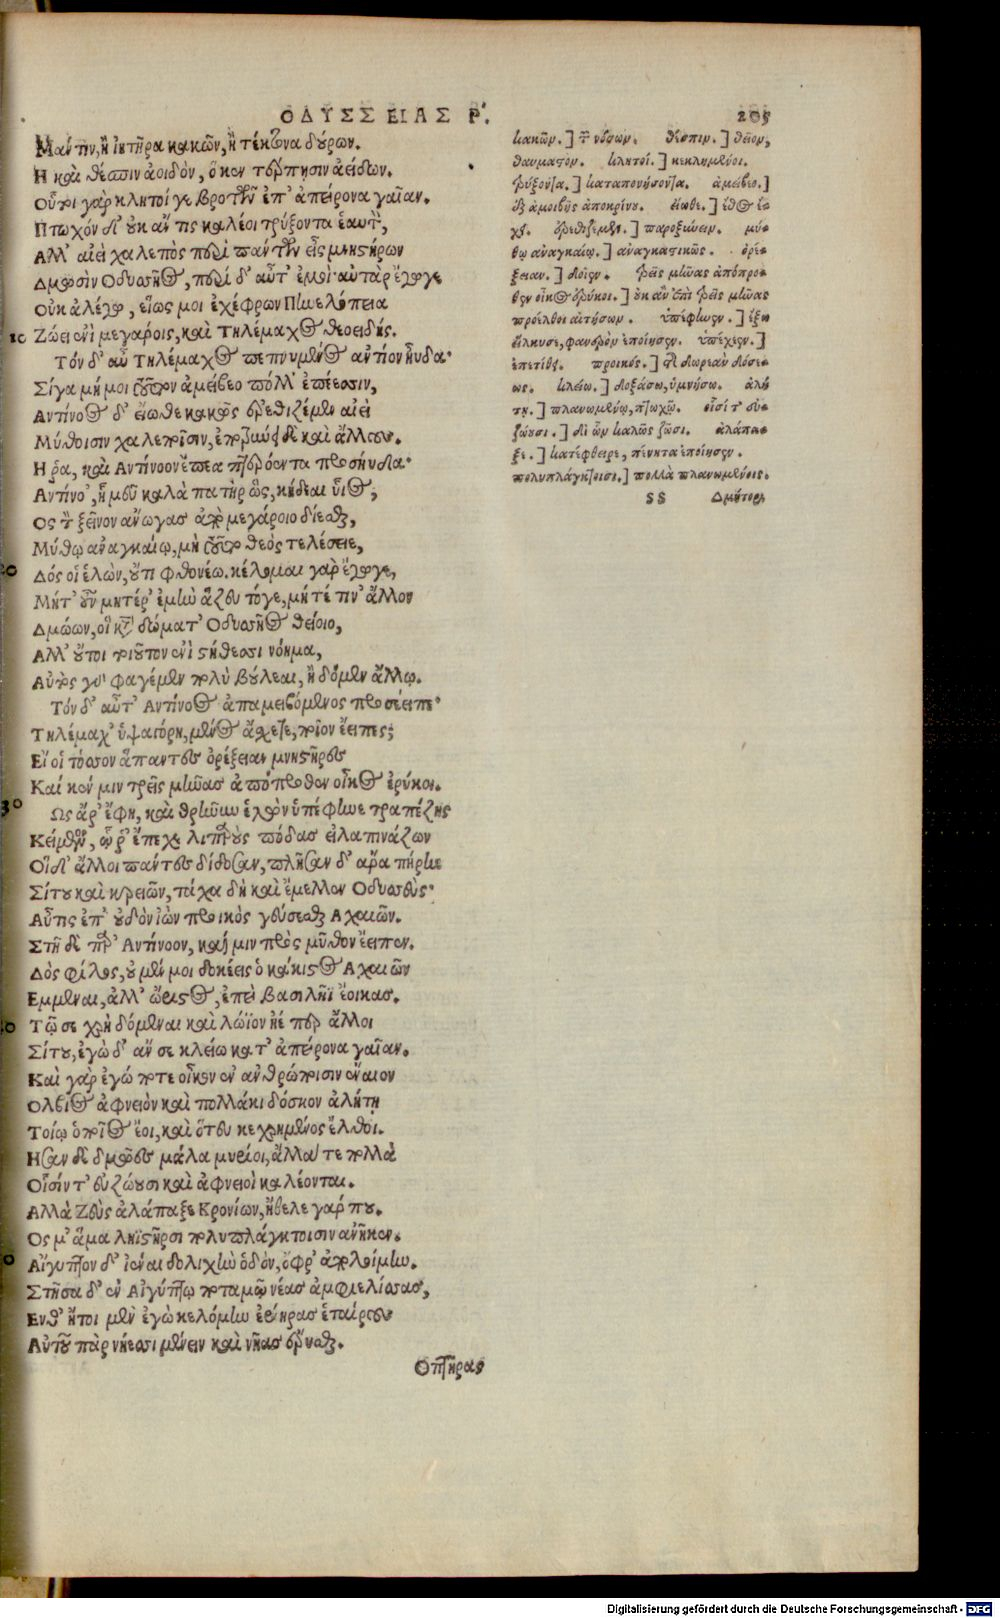 ΟΔΥΣΣΕΙΑΣ Ρ.
205
Μάντιν, ἢ ἰητῆρα κακῶν, ἢ τέκτονα δούρων.
Ἢ καὶ θέσπιν ἀοιδὸν, ὅ κεν τέρπησιν ἀείδων.
Οὗτοι γὰρ κλητοί γε βροτῶν ἐπ' ἀπείρονα γαῖαν.
Πτωχόν δ' οὐκ ἄν τις καλέοι τρύξοντα ἑαυτὸν,
Αλλ' αἰεὶ χαλεπὸς περὶ πάντων εἰς μνηστήρων
Δμωσὶν Οδυσσῆος, περὶ δ' αὖτ' ἐμοί· αὐτὰρ ἔγωγε
Οὐκ ἀλέγω, εἵως μοι ἐχέφρων Πηνελόπεια
10 Ζώει ἐνὶ μεγάροις, καὶ Τηλέμαχος θεοειδής.
Τόν δ' αὖ Τηλέμαχος πεπνυμένος ἀντίον ηὔδα·
Σίγα μή μοι τοῦτον ἀμείβεο πόλλ' ἐπέεσσιν,
Αντίνοος δ' εἴωθε κακῶς ἐρεθιζέμεν αἰεὶ
Μύθοισιν χαλεποῖσιν, ἐποτρύνει δὲ καὶ ἄλλους.
Η ῥα, καὶ Αντίνοον ἔπεα πτερόεντα προσηύδα·
Αντίνο', ἦ μευ καλὰ πατὴρ ὣς, κήδεαι υἷος,
Ος τὸν ξεῖνον ἄνωγας ἀπὸ μεγάροιο δίεσθαι,
Μύθῳ ἀναγκαίῳ, μὴ τοῦτο θεὸς τελέσειε,
20 Δός οἱ ἑλὼν, οὔτι φθονέω. κέλομαι γὰρ ἔγωγε,
Μήτ' οὖν μητέρ' ἐμὴν ἅζευ τόγε, μήτέ τιν' ἄλλον
Δμώων, οἳ κατὰ δώματ' Οδυσσῆος θείοιο,
Αλλ' οὔτοι τοιοῦτον ἐνὶ στήθεσσι νόημα,
Αὐτὸς γὰρ φαγέμεν πολὺ βούλεαι, ἢ δόμεν ἄλλῳ.
Τόν δ' αὖτ' Αντίνοος ἀπαμειβόμενος προσέειπε·
Τηλέμαχ' ὑψαγόρη, μένος ἄσχετε, ποῖον ἔειπες;
Εἴ οἱ τόσσον ἅπαντες ὀρέξειαν μνηστῆρες
Καί κέν μιν τρεῖς μῆνας ἀπόπροθεν οἶκος ἐρύκοι.
30 Ως ἄρ' ἔφη, καὶ θρῆνυν ἑλὼν ὑπέφηνε τραπέζης
Κείμενον, ᾧ ῥ' ἔπεχε λιπαροὺς πόδας εἰλαπινάζων
Οἱ δ' ἄλλοι πάντες δίδοσαν, πλῆσαν δ' ἄρα πήρην
Σίτου καὶ κρειῶν, τάχα δὴ καὶ ἔμελλεν Οδυσσεὺς·
Αὖτις ἐπ' οὐδὸν ἰὼν προικὸς γεύσεσθαι Αχαιῶν.
Στῆ δὲ παρ' Αντίνοον, καί μιν πρὸς μῦθον ἔειπεν.
Δὸς φίλος, οὐ μέν μοι δοκέεις ὁ κάκιστος Αχαιῶν
Εμμεναι, ἀλλ' ὤριστος, ἐπεὶ βασιλῆϊ ἔοικας.
40 Τῷ σε χρὴ δόμεναι καὶ λώϊον ἠέ περ ἄλλοι
Σίτου, ἐγὼ δ' ἄν σε κλείω κατ' ἀπείρονα γαῖαν.
Καὶ γὰρ ἐγώ ποτε οἶκον ἐν ἀνθρώποισιν ἔναιον
Ολβιος ἀφνειὸν καὶ πολλάκι δόσκον ἀλήτῃ
Τοίῳ ὁποῖος ἔοι, καὶ ὅτευ κεχρημένος ἔλθοι.
Ησαν δὲ δμῶες μάλα μυρίοι, ἄλλα τε πολλὰ
Οἷσίν τ' εὖ ζώουσι καὶ ἀφνειοὶ καλέονται.
Αλλὰ Ζεὺς ἀλάπαξε Κρονίων, ἤθελε γάρ που.
Ος μ' ἅμα ληϊστῆρσι πολυπλάγκτοισιν ἀνῆκεν.
0 Αἴγυπτον δ' ἰέναι δολιχὴν ὁδὸν, ὄφρ' ἀπολοίμην.
Στῆσα δ' ἐν Αἰγύπτῳ ποταμῷ νέας ἀμφιελίσσας,
Ενθ' ἤτοι μὲν ἐγὼ κελόμην ἐρίηρας ἑταίρους
Αὐτοῦ πὰρ νήεσσι μένειν καὶ νῆας ἔρυσθαι.
Οπτῆρας
κακῶν.] τῶν νόσων. θέσπιν.] θεῖον,
θαυμαστόν. κλητοί.] κεκλημένοι.
τρύξοντα.] καταπονήσοντα. ἀμείβεο.]
ἐξ ἀμοιβῆς ἀποκρίνου. εἴωθε.] ἔθος ἔ-
χει. ἐρεθιζέμεν.] παροξύνειν. μύ-
θῳ ἀναγκαίῳ.] ἀναγκαστικῶς. ὀρέ-
ξειαν.] δοῖεν. τρεῖς μῆνας ἀπόπρο-
θεν οἶκος ἐρύκοι.] οὐκ ἂν ἐπὶ τρεῖς μῆνας
προέλθοι αἰτήσων. ὑπέφηνεν.] ἔξω
εἵλκυσε, φανερὸν ἐποίησεν. ὑπέχεεν.]
ἐπετίθει. προικός.] τῆς δωρεὰν δόσε-
ως. κλείω.] δοξάσω, ὑμνήσω. ἀλή
τῃ.] πλανωμένῳ, πτωχῷ. οἷσί τ' εὖ
ζώουσι.] δι' ὧν καλῶς ζῶσι. ἀλάπα-
ξε.] κατέφθειρε, πένητα ἐποίησεν.
πολυπλάγκτοισι.] πολλὰ πλανωμένοις.
SS Δμήτορι
Digitalisierung gefördert durch die Deutsche Forschungsgemeinschaft - DFG